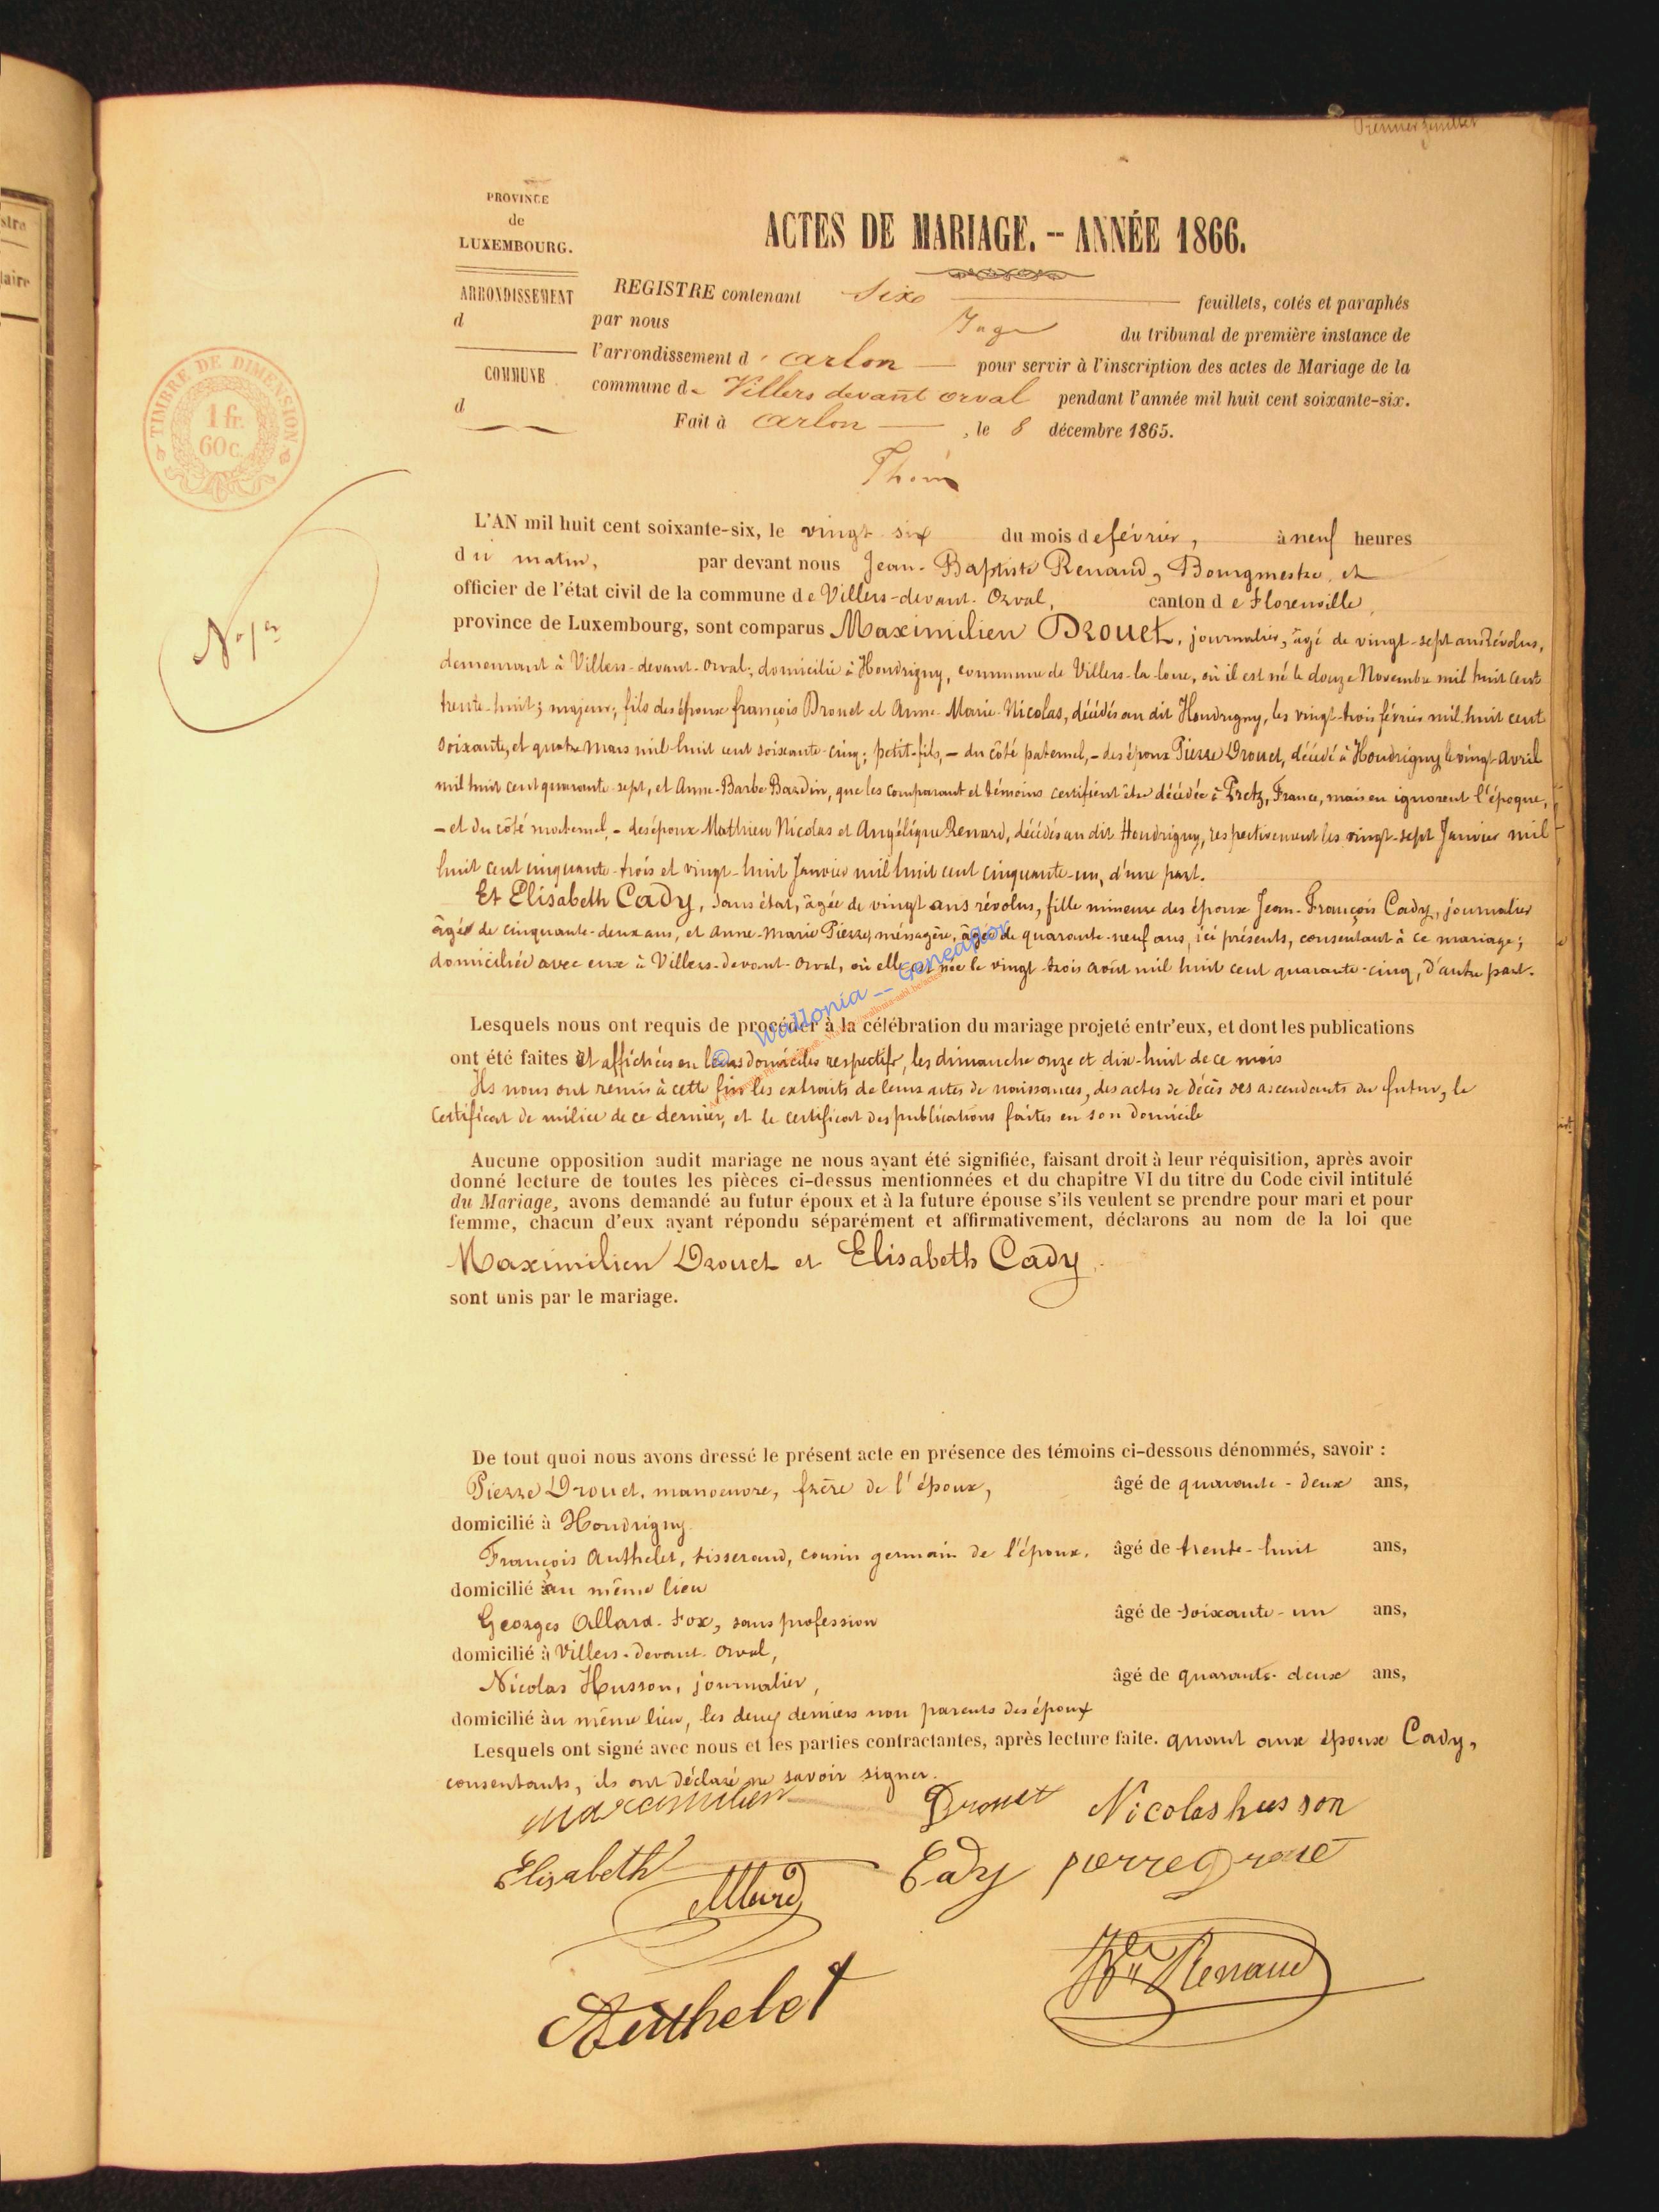 Premier feuillet
PROVINCE
de
LUXEMBOURG.
ARRONDISSEMENT
d
COMMUNE
d
TIMBRE DE DIMENSION
1 fr.
60 c.
N° 1er
ACTES DE MARIAGE. -- ANNÉE 1866.
REGISTRE contenant six feuillets, cotés et paraphés
par nous Juge du tribunal de première instance de
l'arrondissement d'Arlon pour servir à l'inscription des actes de Mariage de la
commune de Villers devant orval pendant l'année mil huit cent soixante-six.
Fait à Arlon, le 8 décembre 1865.
L'AN mil huit cent soixante-six, le vingt six du mois de février, à neuf heures
du matin, par devant nous Jean-Baptiste Renaud, Bourgmestre et
officier de l'état civil de la commune de Villers-devant-Orval, canton de Florenville,
province de Luxembourg, sont comparus Maximilien Drouet, journalier, âgé de vingt-sept ans révolus,
demeurant à Villers-devant-Orval, domicilié à Houdrigny, commune de Villers-la-loue, où il est né le douze Novembre mil huit cent
trente-huit; majeur, fils des époux françois Drouet et Anne-Marie Nicolas, décédés au dit Houdrigny, les vingt-trois février mil huit cent
soixante, et quatre Mars mil huit cent soixante-cinq; petit-fils, – du côté paternel, – des époux Pierre Drouet, décédé à Houdrigny le vingt avril
mil huit cent quarante-sept, et Anne-Barbe Bardin, que les comparant et témoins certifient être décédée à Pretz, France, mais en ignorent l'époque,
– et du côté maternel, – des époux Mathieu Nicolas et Angélique Renard, décédés au dit Houdrigny, respectivement les vingt-sept Janvier mil
huit cent cinquante-trois et vingt-huit Janvier mil huit cent cinquante-un, d'une part.
Et Elisabeth Cady, sans état, âgée de vingt ans révolus, fille mineure des époux Jean-François Cady, journalier
âgé de cinquante-deux ans, et Anne-Marie Pierre, ménagère, âgée de quarante-neuf ans, ici présents, consentant à ce mariage;
domiciliée avec eux à Villers-devant-Orval, où elle est née le vingt-trois août mil huit cent quarante-cinq, d'autre part.
© Wallonia -- Geneanor
Lesquels nous ont requis de procéder à la célébration du mariage projeté entr'eux, et dont les publications
ont été faites et affichées en leurs domiciles respectifs, les dimanche onze et dix-huit de ce mois
Ils nous ont remis à cette fin les extraits de leurs actes de naissances, des actes de décès des ascendants du futur, le
certificat de milice de ce dernier, et le certificat des publications faites en son domicile
Aucune opposition audit mariage ne nous ayant été signifiée, faisant droit à leur réquisition, après avoir
donné lecture de toutes les pièces ci-dessus mentionnées et du chapitre VI du titre du Code civil intitulé
du Mariage, avons demandé au futur époux et à la future épouse s'ils veulent se prendre pour mari et pour
femme, chacun d'eux ayant répondu séparément et affirmativement, déclarons au nom de la loi que
Maximilien Drouet et Elisabeth Cady.
sont unis par le mariage.
De tout quoi nous avons dressé le présent acte en présence des témoins ci-dessous dénommés, savoir :
Pierre Drouet, manoeuvre, frère de l'époux, âgé de quarante-deux ans,
domicilié à Houdrigny
François Authelet, tisserand, cousin germain de l'époux. âgé de trente-huit ans,
domicilié au même lieu
Georges Allard-Fox, sans profession âgé de soixante-un ans,
domicilié à Villers-devant-Orval,
Nicolas Husson, journalier, âgé de quarante-deux ans,
domicilié au même lieu, les deux derniers non parents des époux
Lesquels ont signé avec nous et les parties contractantes, après lecture faite. quant aux époux Cady,
consentants, ils ont déclaré ne savoir signer.
Maximilien Drouet Nicolas husson
Elisabeth Cady pierre Drouet
Allard
Authelet
Renaud